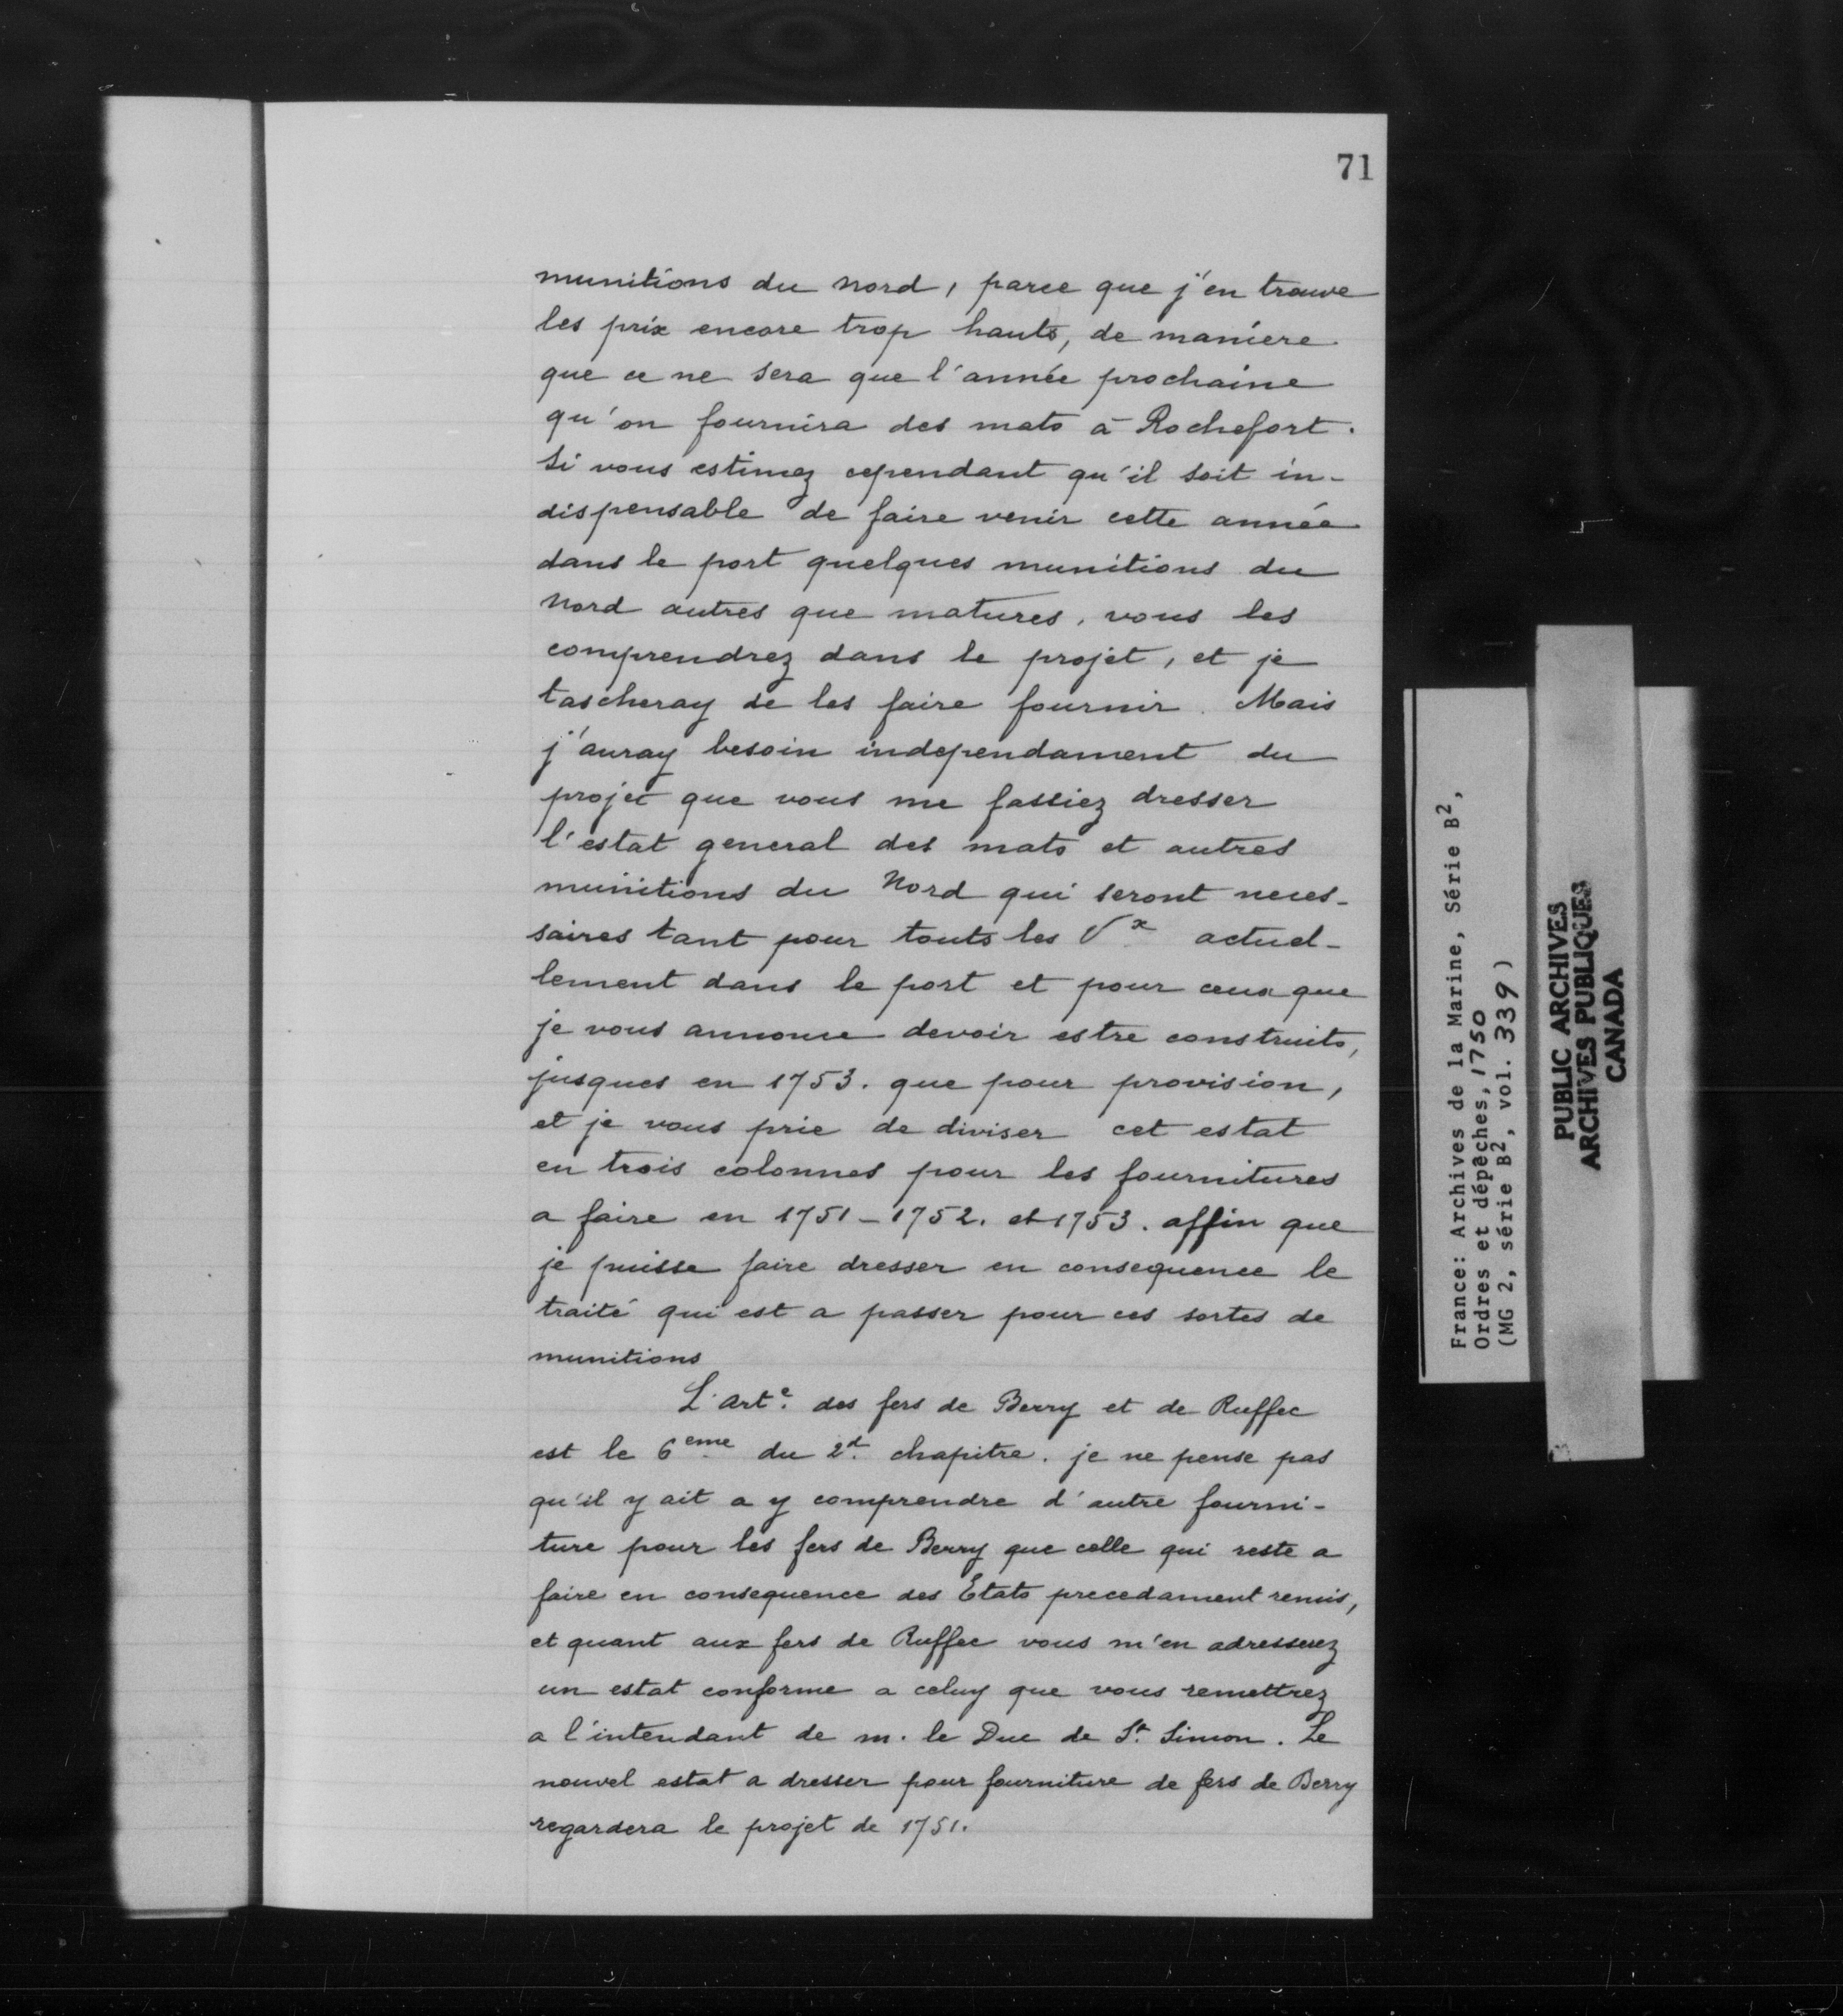 71
munitions du nord, parce que j'en trouve
les prix encore trop hauts, de maniere
que ce ne sera que l'année prochaine
qu'on fournira des mats à Rochefort.
Si vous estimez cependant qu'il soit in-
dispensable de faire venir cette année
dans le port quelques munitions du
Nord autres que matures, vous les
comprendrez dans le projet, et je
tascheray de les faire fournir. Mais
j'auray besoin independament du
projet que vous me fassiez dresser
l'estat general des mats et autres
munitions du Nord qui seront neces-
saires tant pour touts les Vx actuel-
lement dans le port et pour ceux que
je vous annonce devoir estre construits,
jusques en 1753. que pour provision,
et je vous prie de diviser cet estat
en trois colonnes pour les fournitures
a faire en 1751 - 1752. et 1753. affin que
je puisse faire dresser en consequence le
traité qui est a passer pour ces sortes de
munitions
L'arte. des fers de Berry et de Ruffec
est le 6eme du 2d. chapitre. je ne pense pas
qu'il y ait a y comprendre d'autre fourni-
ture pour les fers de Berry que celle qui reste a
faire en consequence des Etats precedament remis,
et quant aux fers de Ruffec vous m'en adresserez
un estat conforme a celuy que vous remettrez
a l'intendant de m. le Duc de St. Simon. Le
nouvel estat a dresser pour fourniture de fers de Berry
regardera le projet de 1751.
France: Archives de la Marine, Série B2,
Ordres et dépêches, 1750
(MG 2, série B2, vol. 339)
PUBLIC ARCHIVES
ARCHIVES PUBLIQUES
CANADA